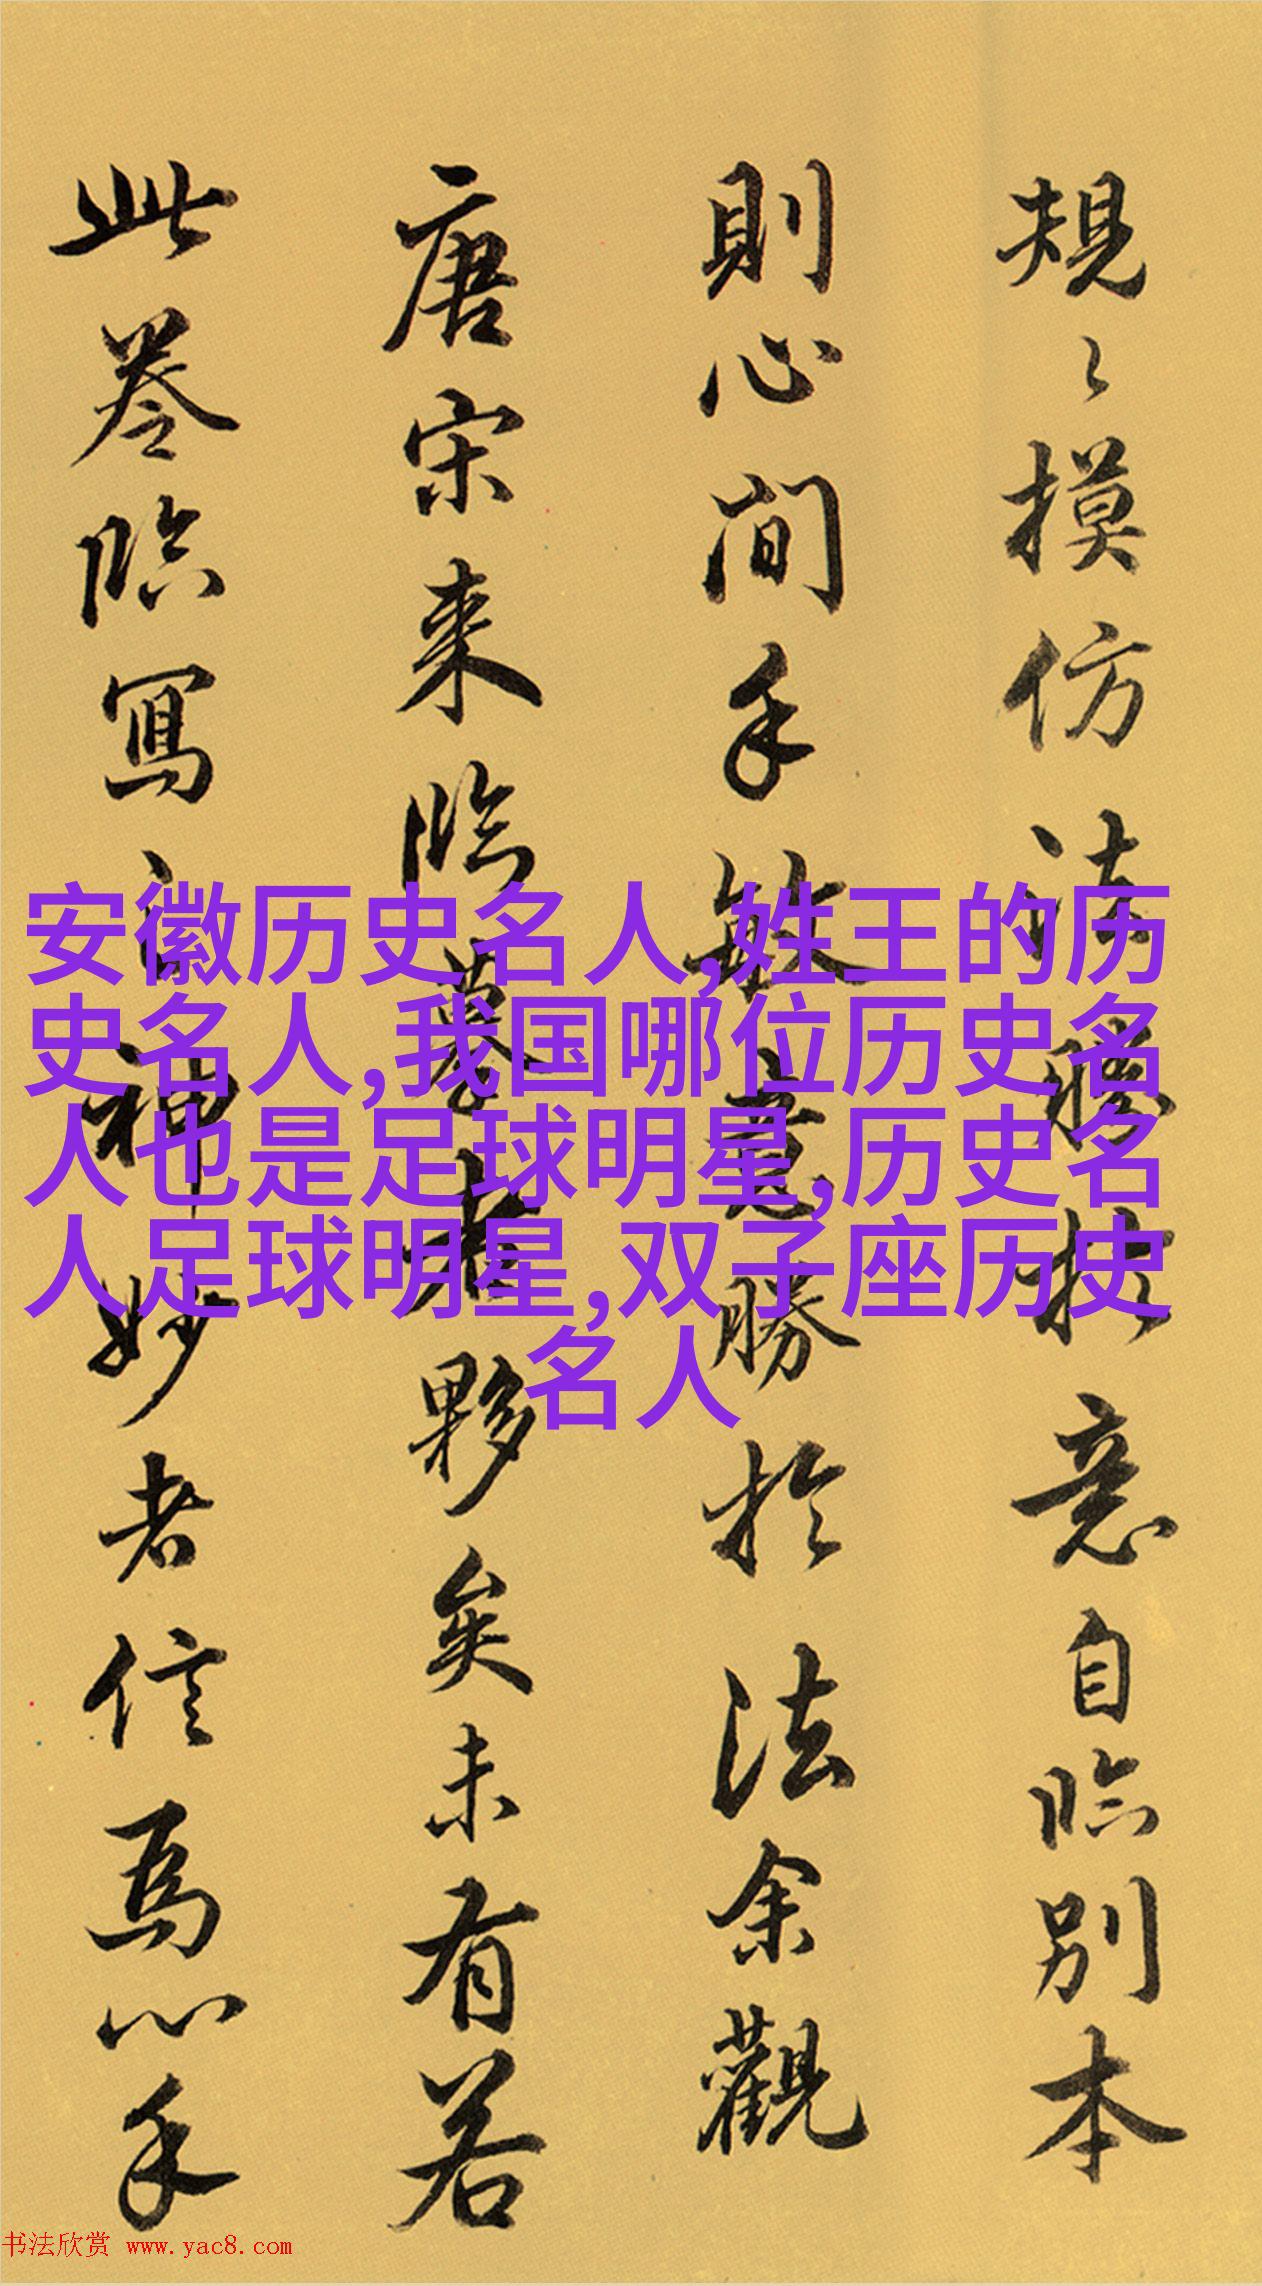 規々摸仿法勝於意自臨別本
則心間手敏意勝於法余觀
唐宋来臨摹者夥矣未有若
此卷臨寫之神妙者信為心手
安徽历史名人,姓王的历
史名人,我国哪位历史名
人也是足球明星,历史名
人足球明星,双子座历史
名人
书法欣赏 www.yac8.com